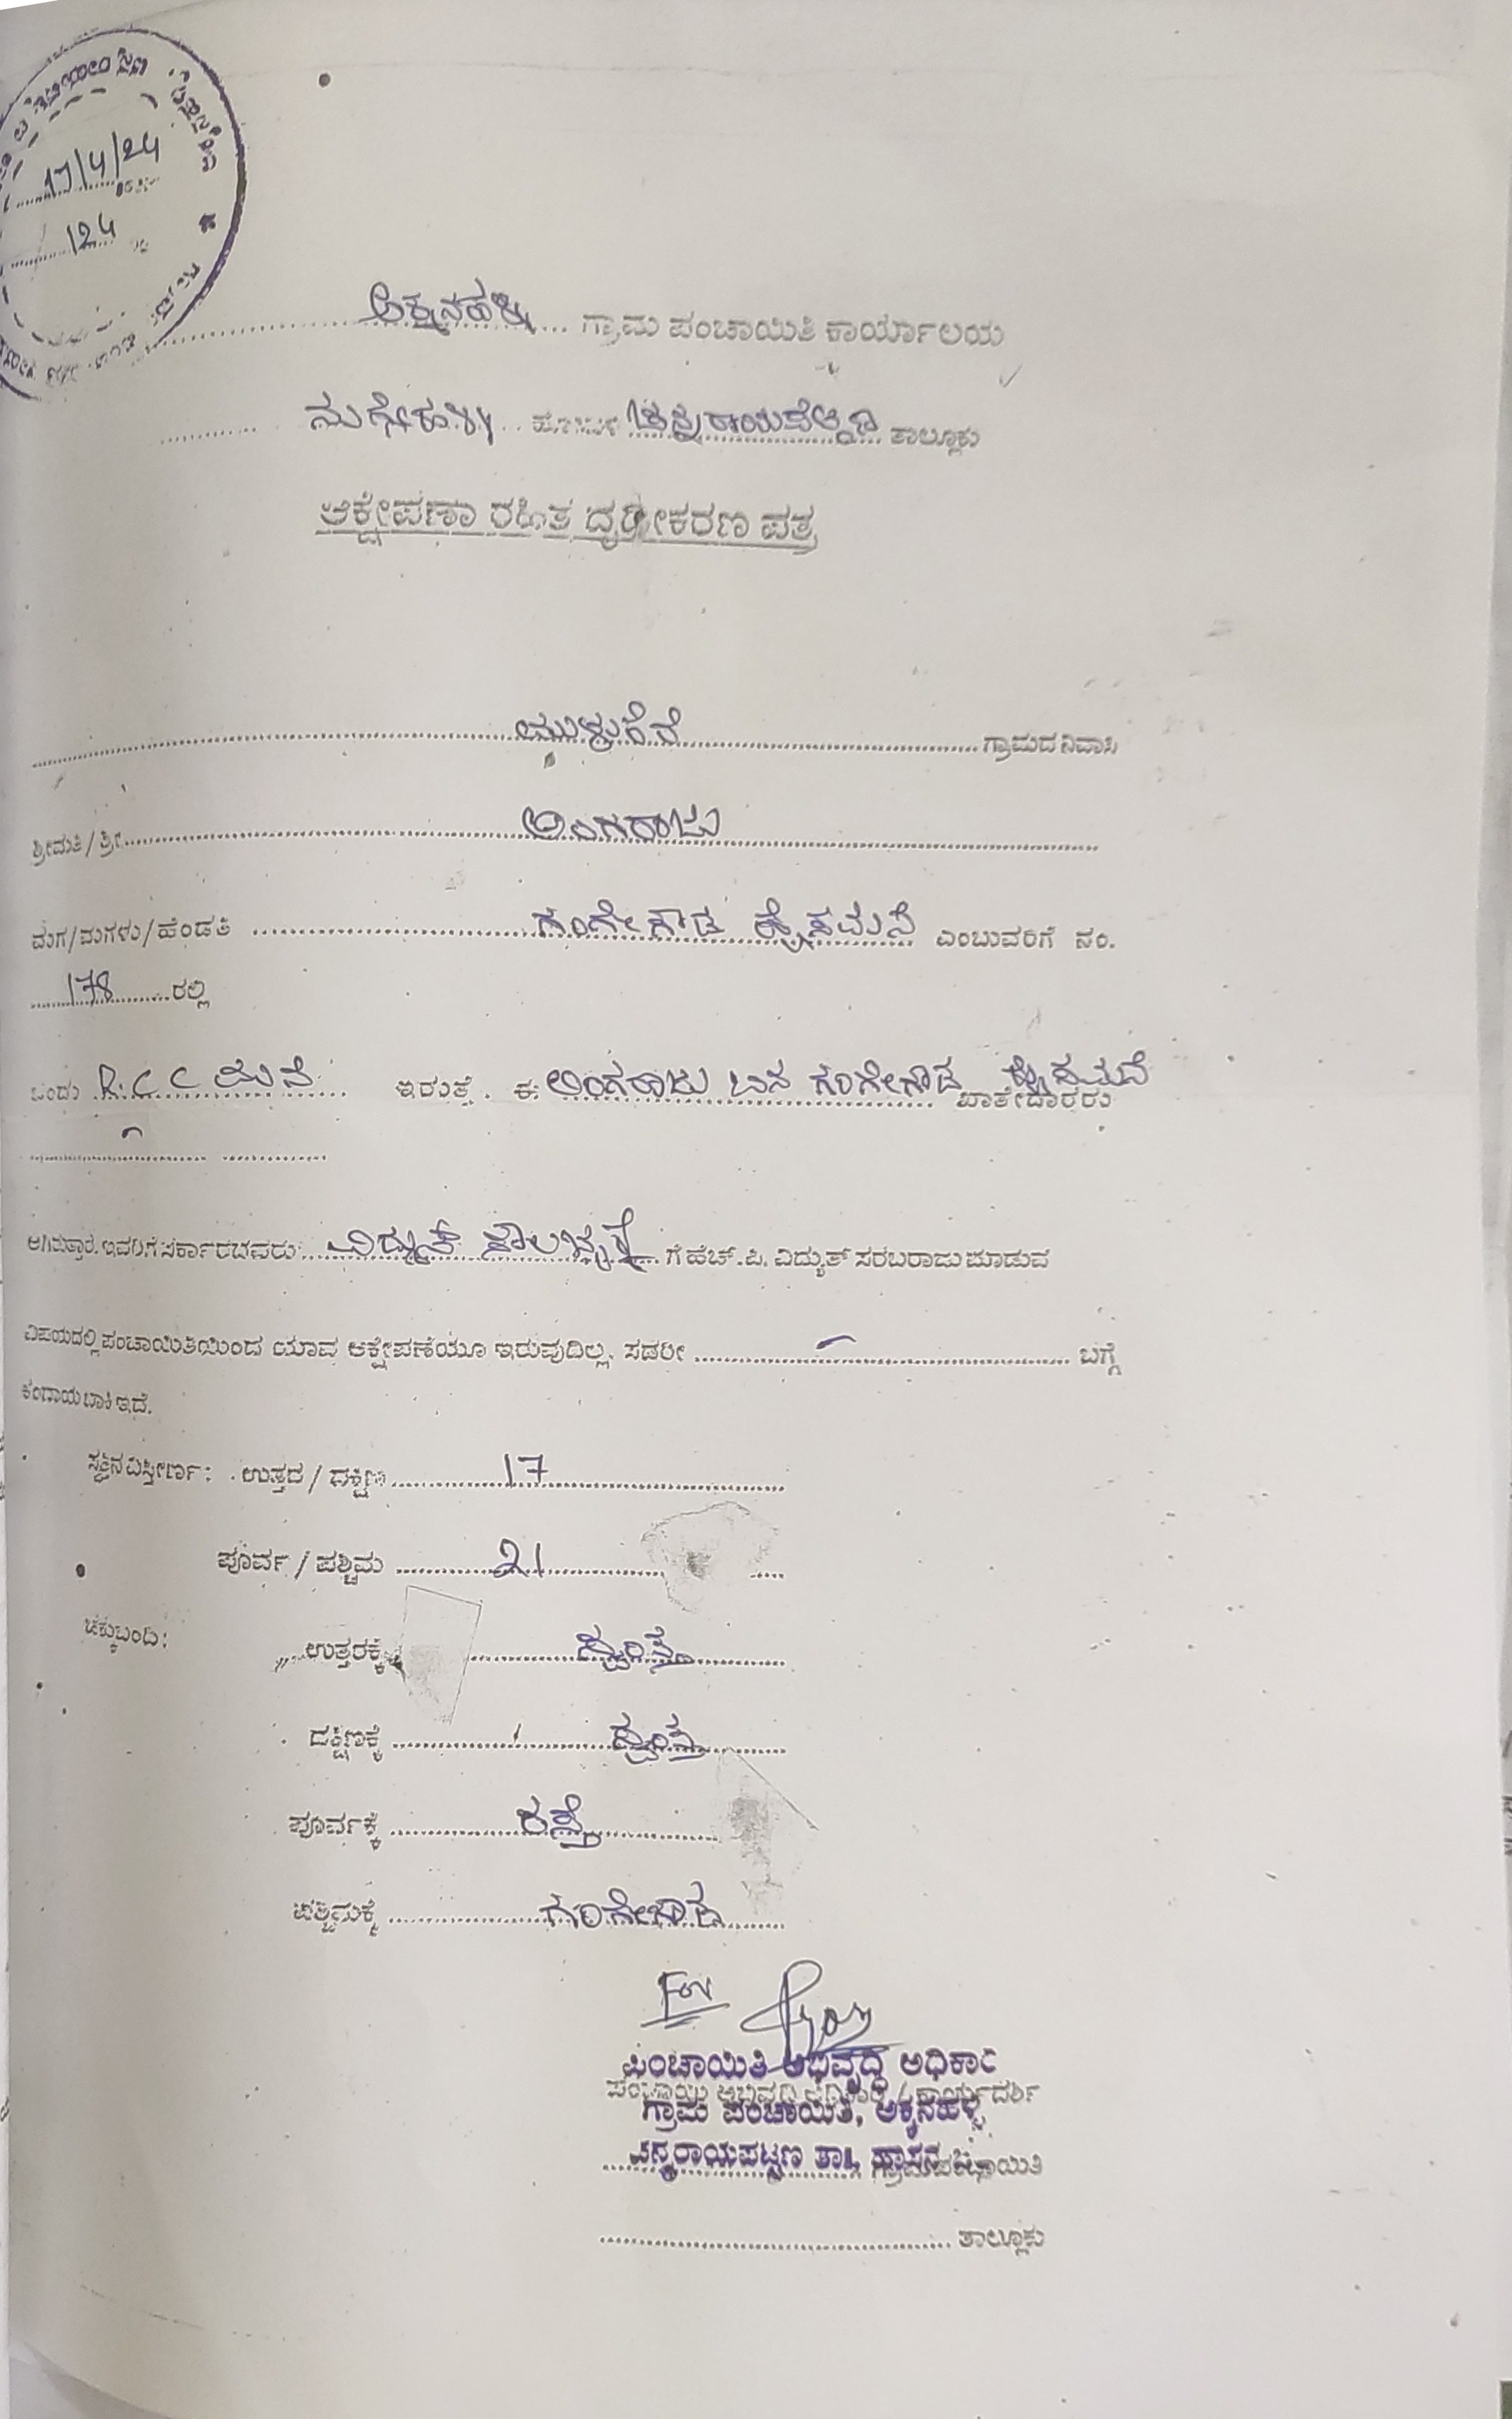 17/4/24
124
ಅಕ್ಕನಹಳ್ಳಿ ಗ್ರಾಮ ಪಂಚಾಯಿತಿ ಕಾರ್ಯಾಲಯ
ನುಗ್ಗೇಹಳ್ಳಿ ಹೋಬಳಿ ತಾಲ್ಲೂಕು
ಆಕ್ಷೇಪಣಾ ರಹಿತ ದೃಢೀಕರಣ ಪತ್ರ
ಗ್ರಾಮದ ನಿವಾಸಿ
ಶ್ರೀಮತಿ / ಶ್ರೀ ಲಿಂಗರಾಜು
ಮಗ/ಮಗಳು/ಹೆಂಡತಿ ಗಂಗೇಗೌಡ ಎಂಬುವರಿಗೆ ನಂ.
178 ರಲ್ಲಿ
ಒಂದು R.C C ಮನೆ ಇರುತ್ತೆ. ಈ ಲಿಂಗರಾಜು ಬಿನ ಗಂಗೇಗೌಡ ಖಾತೇದಾರರು
ಆಗಿರುತ್ತಾರೆ. ಇವರಿಗೆ ಸರ್ಕಾರದವರು ವಿದ್ಯುತ್ ಸೌಲಭ್ಯಕ್ಕೆ ಗೆ ಹೆಚ್.ಪಿ. ವಿದ್ಯುತ್ ಸರಬರಾಜು ಮಾಡುವ
ವಿಷಯದಲ್ಲಿ ಪಂಚಾಯಿತಿಯಿಂದ ಯಾವ ಆಕ್ಷೇಪಣೆಯೂ ಇರುವುದಿಲ್ಲ. ಸದರೀ ಬಗ್ಗೆ
ಕಂದಾಯ ಬಾಕಿ ಇದೆ.
ಸ್ವತ್ತಿನ ವಿಸ್ತೀರ್ಣ: ಉತ್ತರ / ದಕ್ಷಿಣ 17
ಪೂರ್ವ / ಪಶ್ಚಿಮ 21
ಚಕ್ಕುಬಂದಿ: ಉತ್ತರಕ್ಕೆ ಸ್ವಂತ
ದಕ್ಷಿಣಕ್ಕೆ ಸ್ವಂತ
ಪೂರ್ವಕ್ಕೆ ರಸ್ತೆ
ಪಶ್ಚಿಮಕ್ಕೆ ಗಂಗೇಗೌಡ
For
ಪಂಚಾಯಿತಿ ಅಭಿವೃದ್ಧಿ ಅಧಿಕಾರಿ
ಗ್ರಾಮ ಪಂಚಾಯಿತಿ, ಅಕ್ಕನಹಳ್ಳಿ
ಚನ್ನರಾಯಪಟ್ಟಣ ತಾ||, ಹಾಸನ
ಗ್ರಾಮ ಪಂಚಾಯಿತಿ
ತಾಲ್ಲೂಕು